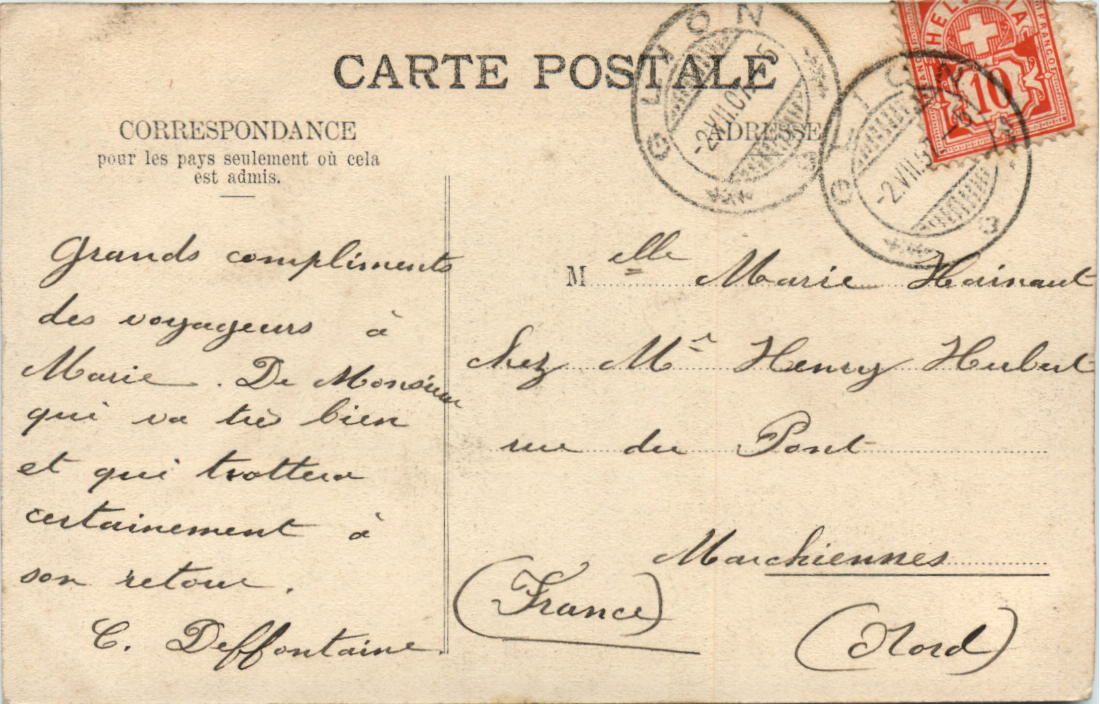 CARTE POSTALE
CORRESPONDANCE
pour les pays seulement où cela
est admis.
ADRESSE
GLION
-2.VII.07.-5
GLION
-2.VII.07.
HELVETIA
FRANCO
10
Grands compliments
des voyageurs à
Marie. De Monsieur
qui va très bien
et qui trottera
certainement à
son retour.
C. Deffontaine.
Melle Marie Hainaut
chez Mr Henry Hubert
rue du Pont
Marchiennes
(France)
(Nord)